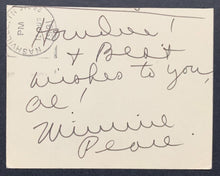 NASHVILLE
PM
Howdee!
& Best
wishes to you,
Al!
Minnie
Pearl.